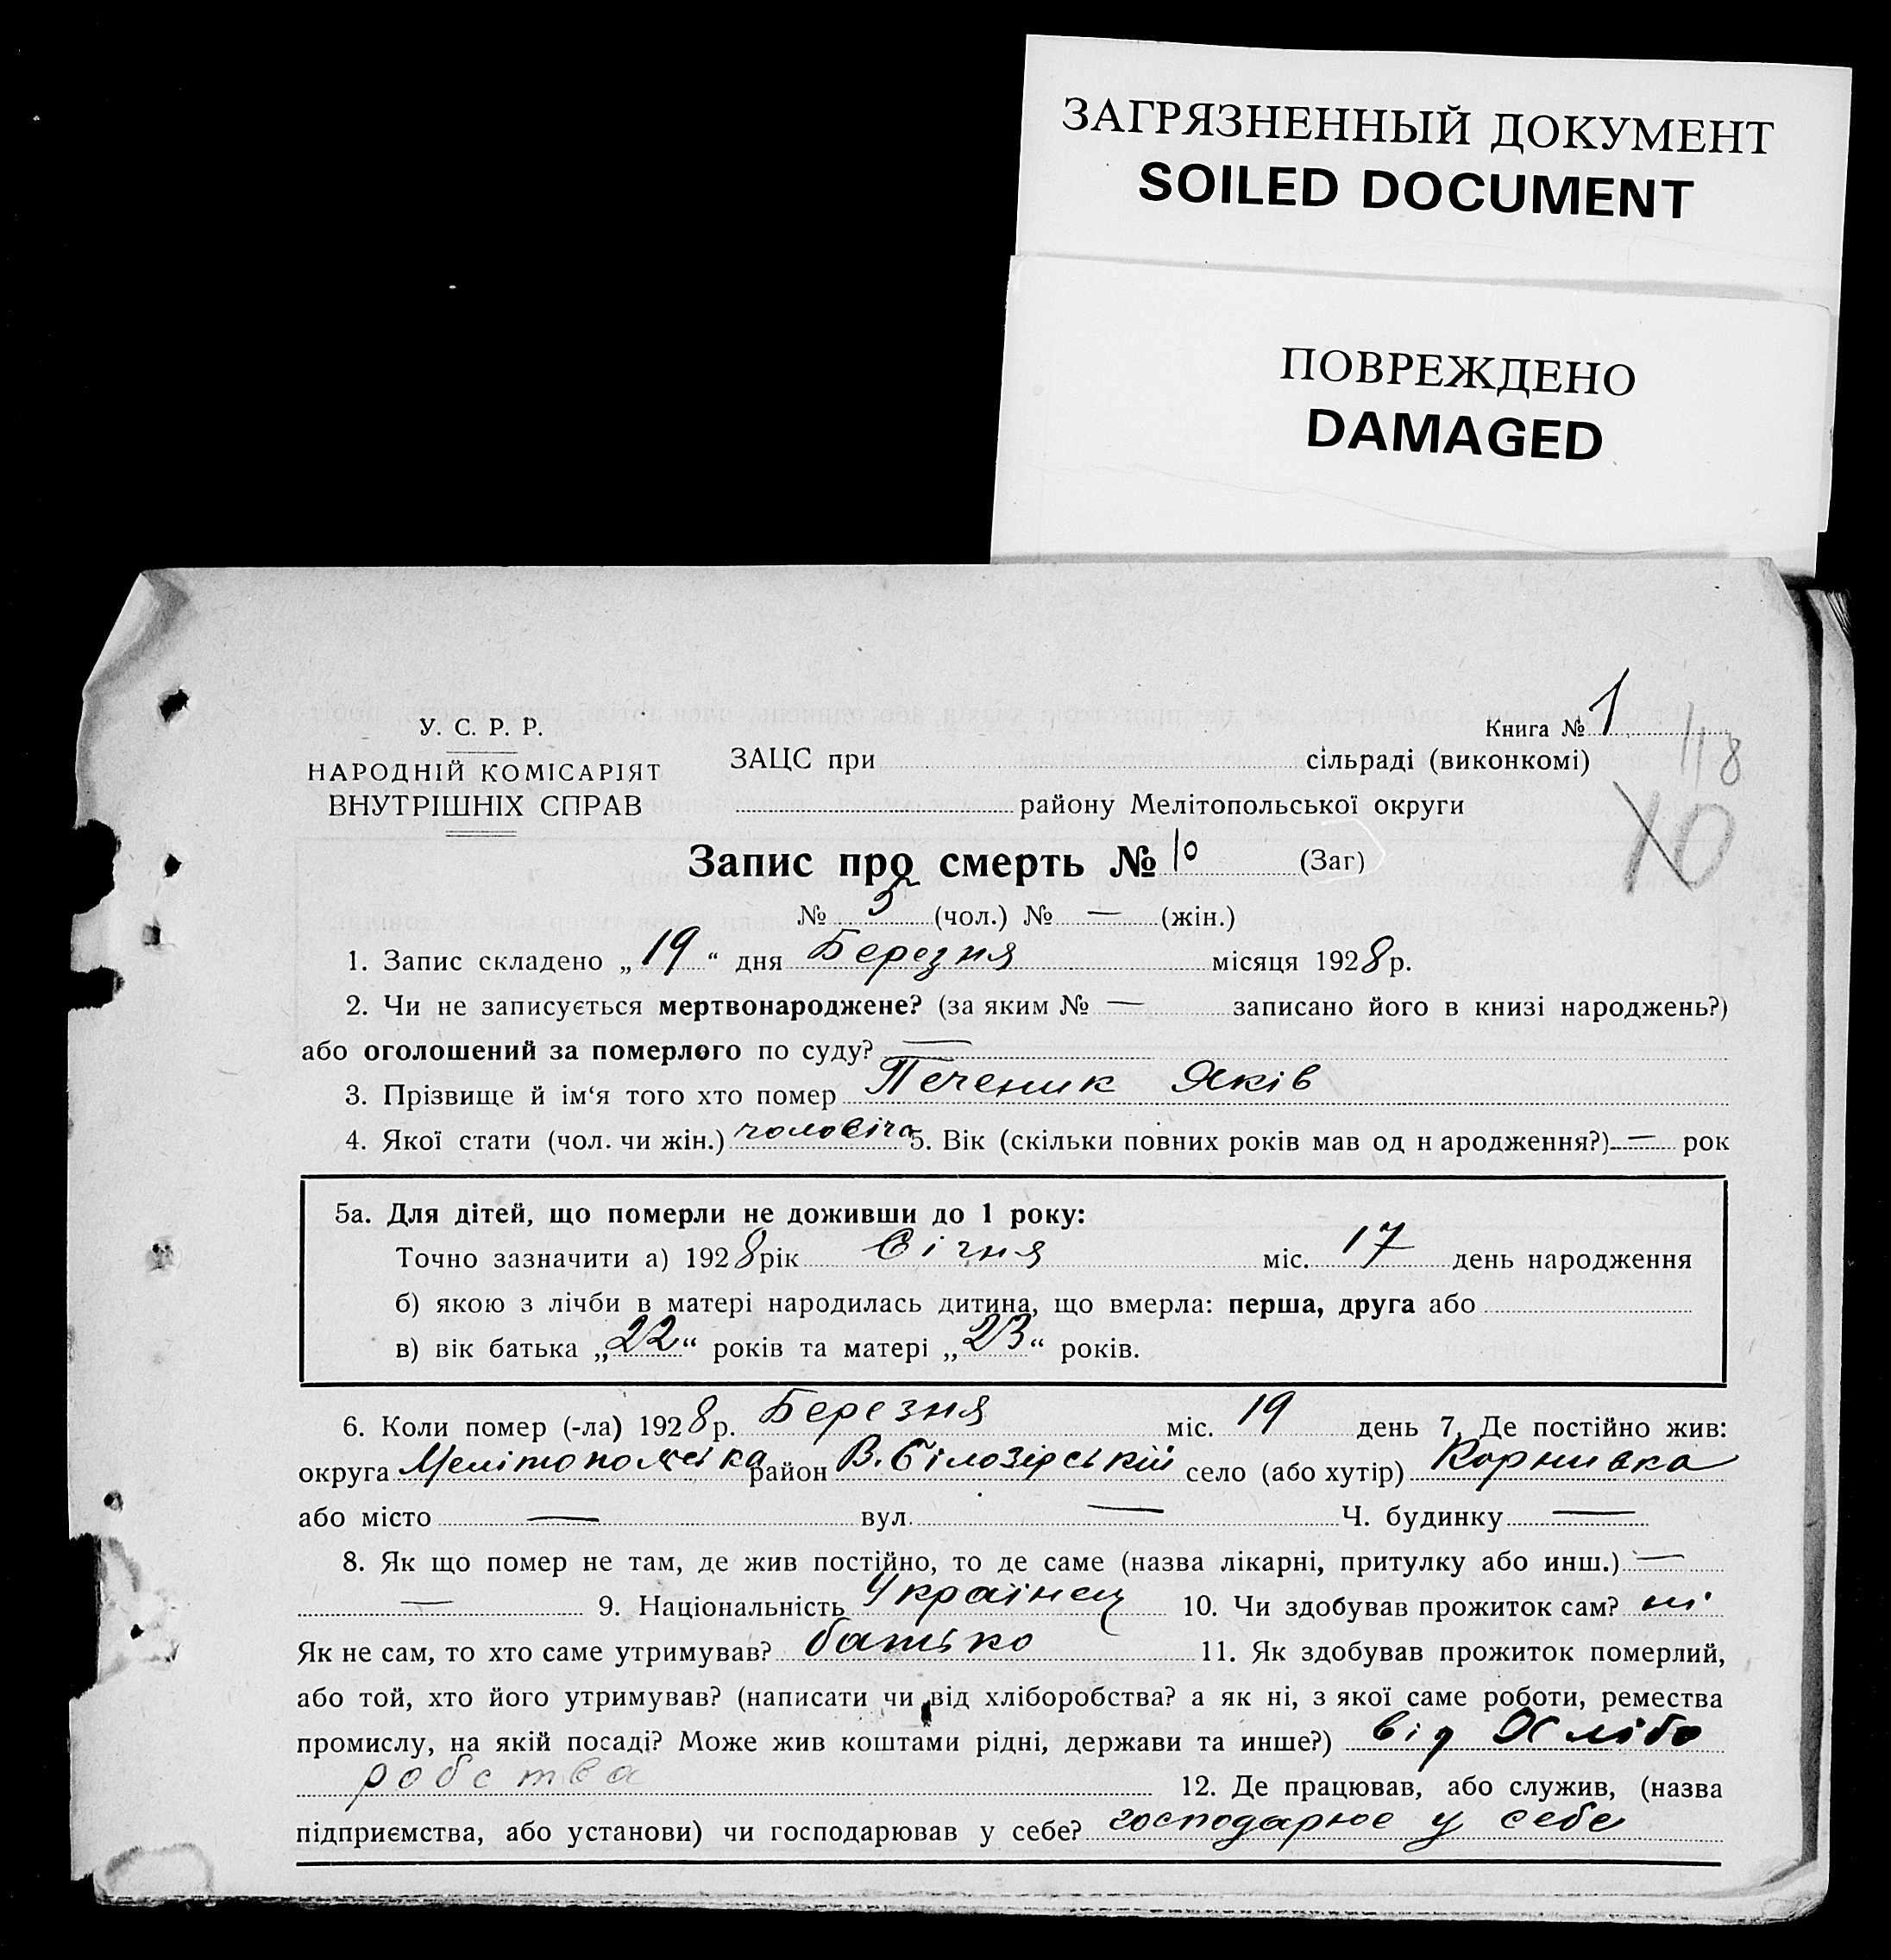 ЗАГРЯЗНЕННЫЙ ДОКУМЕНТ
SOILED DOCUMENT
ПОВРЕЖДЕНО
DAMAGED
У. С. Р. Р.
НАРОДНІЙ КОМІСАРІЯТ
ВНУТРІШНІХ СПРАВ
Книга № 1
118
ЗАЦС при сільраді (виконкомі)
району Мелітопольської округи
10
Запис про смерть № 10 (Заг)
№ 5 (чол.) № — (жін.)
1. Запис складено „19“ дня Березня місяця 1928 р.
2. Чи не записується мертвонароджене? (за яким № — записано його в книзі народжень?)
або оголошений за померлого по суду? —
3. Прізвище й ім‘я того хто помер Печеник Яків
4. Якої стати (чол. чи жін.) чоловіча 5. Вік (скільки повних років мав од н ародження?) — рок
5а. Для дітей, що померли не доживши до 1 року:
Точно зазначити а) 1928 рік Січня міс. 17 день народження
б) якою з лічби в матері народилась дитина, що вмерла: перша, друга або
в) вік батька „22“ років та матері „23“ років.
6. Коли помер (-ла) 1928 р. Березня міс. 19 день 7. Де постійно жив:
округа Мелітопольська район В. Білозірський село (або хутір) Корнивка
або місто — вул. — Ч. будинку —
8. Як що помер не там, де жив постійно, то де саме (назва лікарні, притулку або инш.) —
— 9. Національність Українец 10. Чи здобував прожиток сам? ні
Як не сам, то хто саме утримував? батько 11. Як здобував прожиток померлий,
або той, хто його утримував? (написати чи від хліборобства? а як ні, з якої саме роботи, ремества
промислу, на якій посаді? Може жив коштами рідні, держави та инше?) від Хлібо
робства 12. Де працював, або служив, (назва
підприємства, або установи) чи господарював у себе? господарює у себе